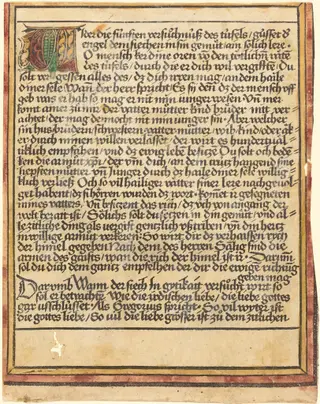 Wider die fünften versüchnuß des tüfels / güsset dz
engel dem siechen in sin gemüt ain solich lere ·
O mensch ker dine oren von den tottlichen räte
des tüfels / durch die er dich wil vergifften · Du
solt vergessen alles des / dz dich irren mag / an dem haile
diner sele Wan der herr spricht Es sy den dz der mensch uff
geb was er hab so mag er nit min iunger wesen Vn mer
ainr zu mir der vatter mütter vnd brüder nit ver
achtet der mag dennocht nit min iunger sin Aber welcher
sin hus brüdern schwestern vatter mütter wib kind oder äk
er durch minen willen verlasset der wirt es hundertual
ticklich empfahen vnd dz ewig lebe besicze Du solt och beden
ken die armut xpi / der vm dich / an dem crütz hangend sine
liepsten mütter vnd iunger durch dz haile diner sele willig
klich verließ Och so vil hailiger vätter siner lere nachgeuol
get habent die si horen wurden dz wort komet ir gesegneten
mines vatters Vn besiczent das rich / dz uch von angang der
welt berait ist / Sölichs solt du setzen in din gemüt vnd al
le zitliche ding als vergift gentzlich verachten vn din hertz
in willige armüt verkeren So wirt dir dz verhaissen rich
der himel gegeben wan dem des herren Sälig sind die
armen des gaists / wan die rich der himel ist ir · Darum
sol du dich dem gantz empfelhen der dir die ewige richtung
geben mag
Darumb Wann der siech in gytikait versücht wirt so
sol er betrachten Wie die irdischen liebe / die liebe gottes
gar vsschlüsset · Als Gregorius spricht · So vil wyter ist
die gottes liebe / So vil die liebe grösser ist zü dem zitlichen